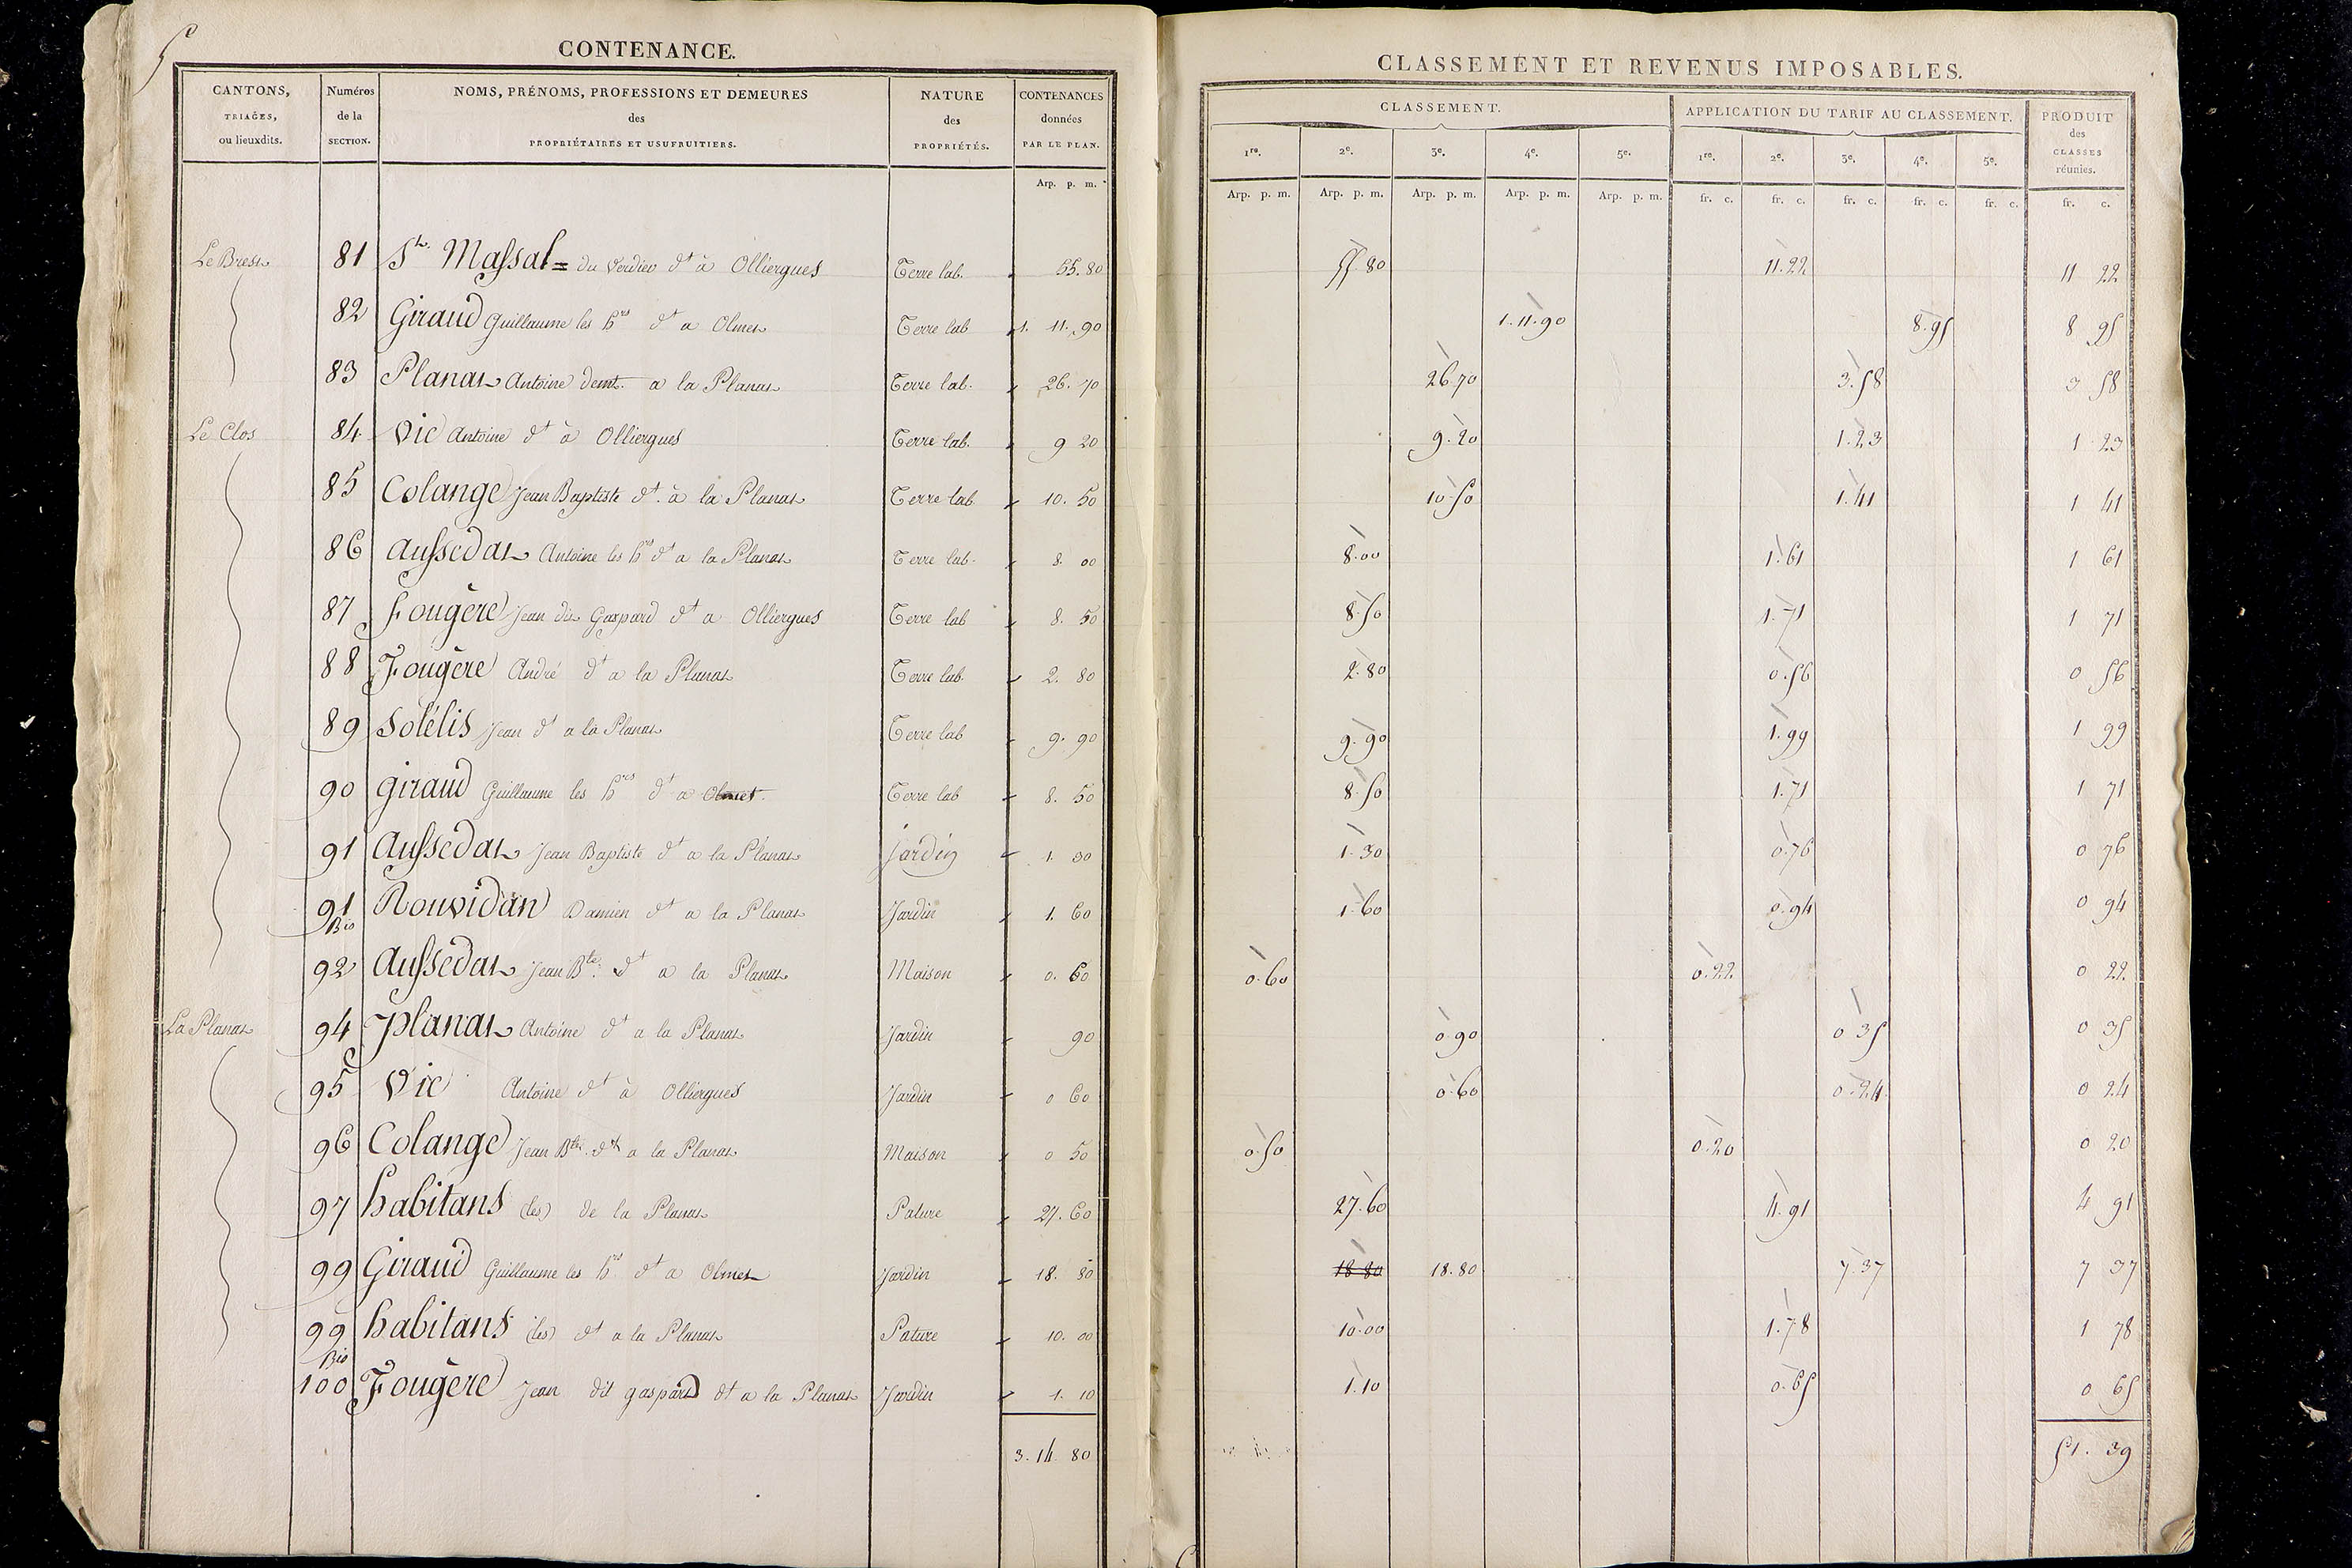 5
CONTENANCE.
CANTONS, TRIAGES, ou lieuxdits. | Numéros de la SECTION. | NOMS, PRÉNOMS, PROFESSIONS ET DEMEURES des PROPRIÉTAIRES ET USUFRUITIERS. | NATURE des PROPRIÉTÉS. | CONTENANCES données PAR LE PLAN.
Arp. p. m.
Le Brest 81 St. Massal = du Verdier dt à Olliergues Terre lab. 55. 80
82 Giraud Guillaume les hrs dt a Olmet Terre lab 1. 11. 90
83 Planat Antoine demt. a la Planat Terre lab. 26. 70
Le Clos 84 Vic Antoine dt à Olliergues Terre lab. 9 20
85 Colange Jean Baptiste dt. à la Planat Terre lab. 10. 50
86 Aussedat Antoine les hrs dt a la Planat Terre lab. 8. 00
87 Fougère Jean dit Gaspard dt a Olliergues Terre lab 8. 50
88 Fougère André dt a la Planat Terre lab. 2. 80
89 Solélis Jean dt a la Planat Terre lab 9. 90
90 Giraud Guillaume les hrs dt a Olmet. Terre lab 8. 50
91 Aussedat Jean Baptiste dt a la Planat Jardin 1. 30
91 Bis Rouvidan Damien dt a la Planat Jardin 1. 60
92 Aussedat Jean Bte. dt a la Planat Maison 0. 60
La Planat 94 Planat Antoine dt a la Planat Jardin 90
95 Vic Antoine dt à Olliergues Jardin 0 60
96 Colange Jean Bte. dt a la Planat Maison 0 50
97 habitans (les) de la Planat Pature 27. 60
99 Giraud Guillaume les hrs dt a Olmet Jardin 18. 80
99 Bis habitans (les) dt a la Planat Pature 10. 00
100 Fougère Jean dit gaspard dt a la Planat Jardin 1. 10
3. 14 80
CLASSEMENT ET REVENUS IMPOSABLES.
CLASSEMENT. | APPLICATION DU TARIF AU CLASSEMENT. | PRODUIT des CLASSES réunies.
1re. 2e. 3e. 4e. 5e. 1re. 2e. 3e. 4e. 5e.
Arp. p. m. Arp. p. m. Arp. p. m. Arp. p. m. Arp. p. m. fr. c. fr. c. fr. c. fr. c. fr. c. fr. c.
55.80 11.22 11 22
1.11.90 8.95 8 95
26.70 3.58 3 58
9.20 1.23 1 23
10.50 1.41 1 41
8.00 1.61 1 61
8.50 1.71 1 71
2.80 0.56 0 56
9.90 1.99 1 99
8.50 1.71 1 71
1.30 0.76 0 76
1.60 0.94 0 94
0.60 0.22 0 22
0.90 0 35 0 35
0.60 0.24 0 24
0.50 0.20 0 20
27.60 4.91 4 91
18 80 18.80 7.37 7 37
10.00 1.78 1 78
1.10 0.65 0 65
51. 39